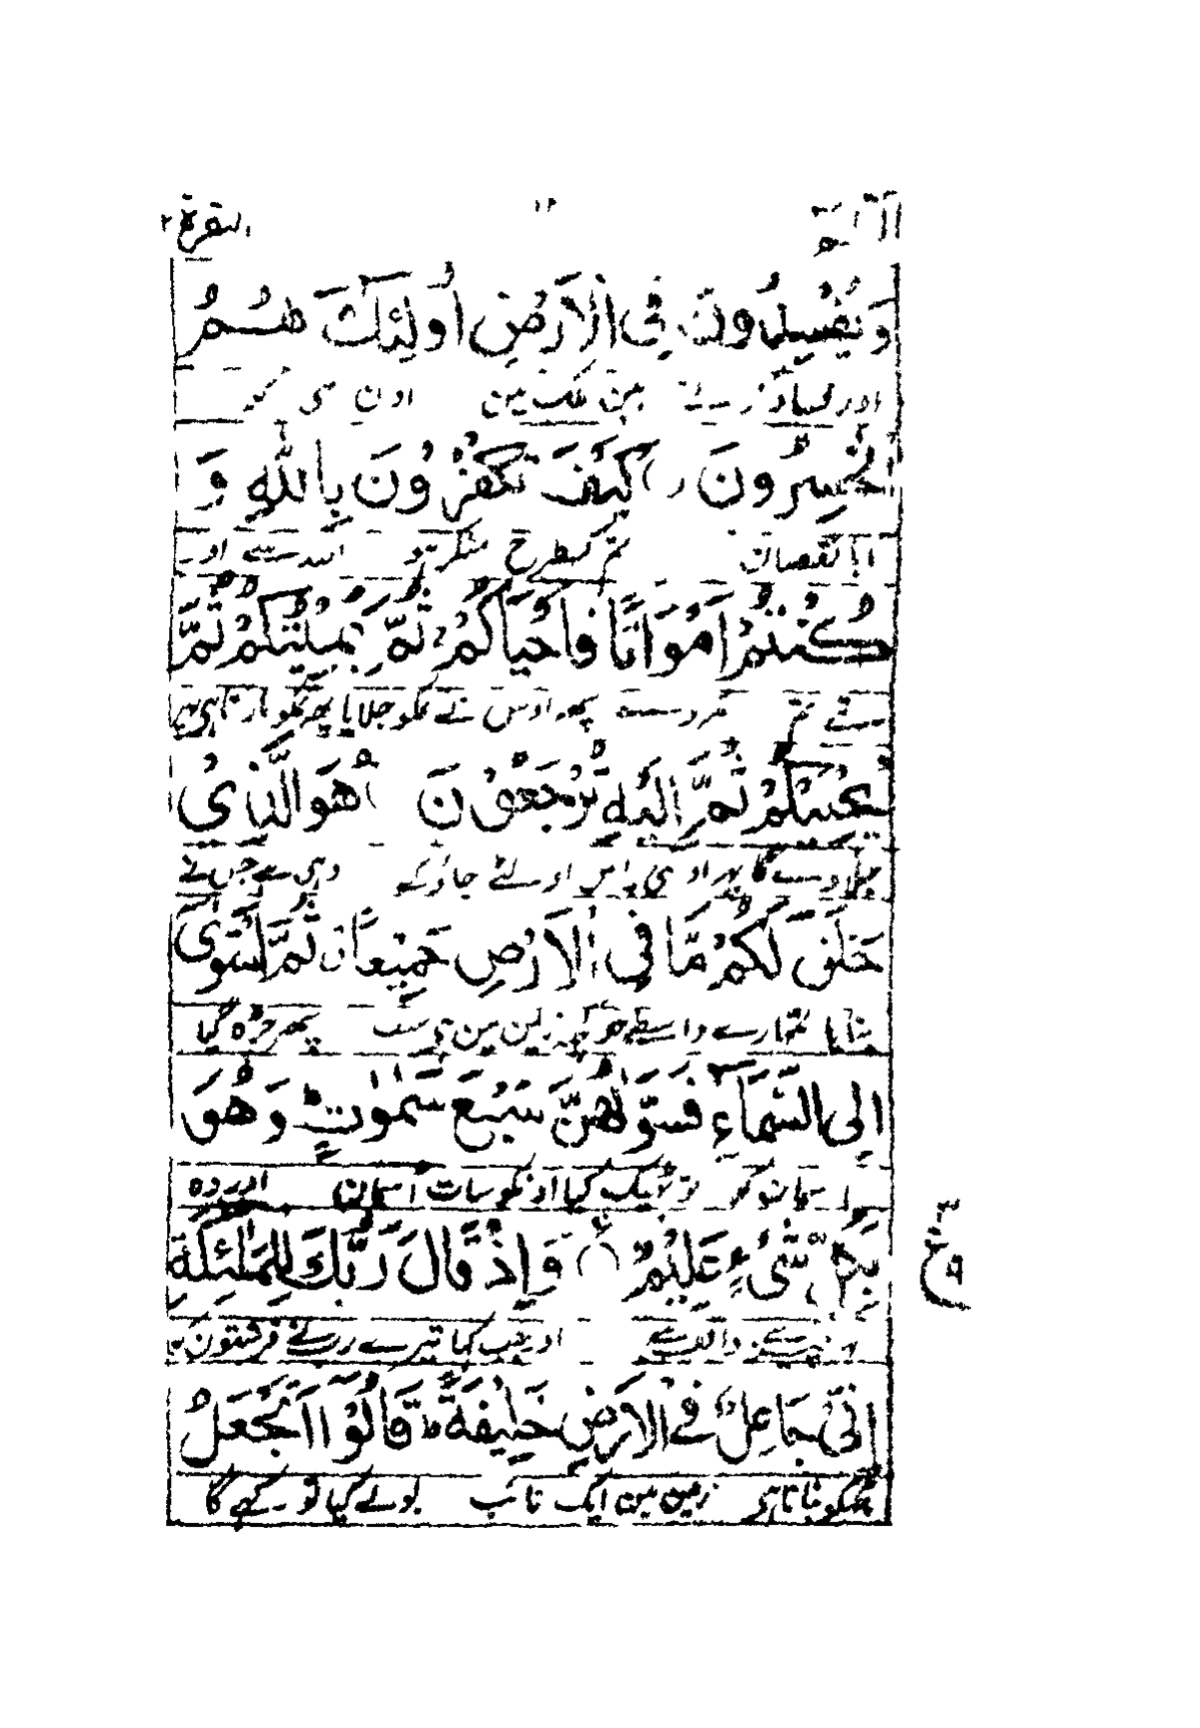 البقرة ٢
وَيُفْسِدُونَ فِى الْاَرْضِ اُولٰٓئِكَ هُمُ
اور فساد کرتے ہین ملک مین اون ہی کو
الْخٰسِرُونَ كَيْفَ تَكْفُرُوْنَ بِاللّٰهِ وَ
آیا نقصان تم کسطرح منکر ہو اللہ سے اور
كُنْتُمْ اَمْوَاتًا فَاَحْيَاكُمْ ثُمَّ يُمِيْتُكُمْ ثُمَّ
تھے تم مردے پھر اوس نے تمکو جلایا پھر تمکو مارتا ہی پھر
يُحْيِيْكُمْ ثُمَّ اِلَيْهِ تُرْجَعُوْنَ هُوَ الَّذِيْ
جلاوے گا پھر اوسی پاس اولٹے جاؤگے وہی ہے جس نے
خَلَقَ لَكُمْ مَّا فِى الْاَرْضِ جَمِيْعًا ثُمَّ اسْتَوٰى
بنایا تمہارے واسطے جو کچھ زمین مین ہی سب پھر چڑہ گیا
اِلَى السَّمَآءِ فَسَوّٰىهُنَّ سَبْعَ سَمٰوٰتٍ ط وَهُوَ
آسمانکو تو ٹھیک کیا اونکو سات آسمان اور وہ
بِكُلِّ شَىْءٍ عَلِيْمٌ وَاِذْ قَالَ رَبُّكَ لِلْمَلٰٓئِكَةِ
ہر چیز سے واقف ہے اور جب کہا تیرے رب نے فرشتون کو
اِنِّىْ جَاعِلٌ فِى الْاَرْضِ خَلِيْفَةً ط قَالُوْٓا اَتَجْعَلُ
مجھکو بنانا ہی زمین مین ایک نائب بولے کیا تو رکھے گا